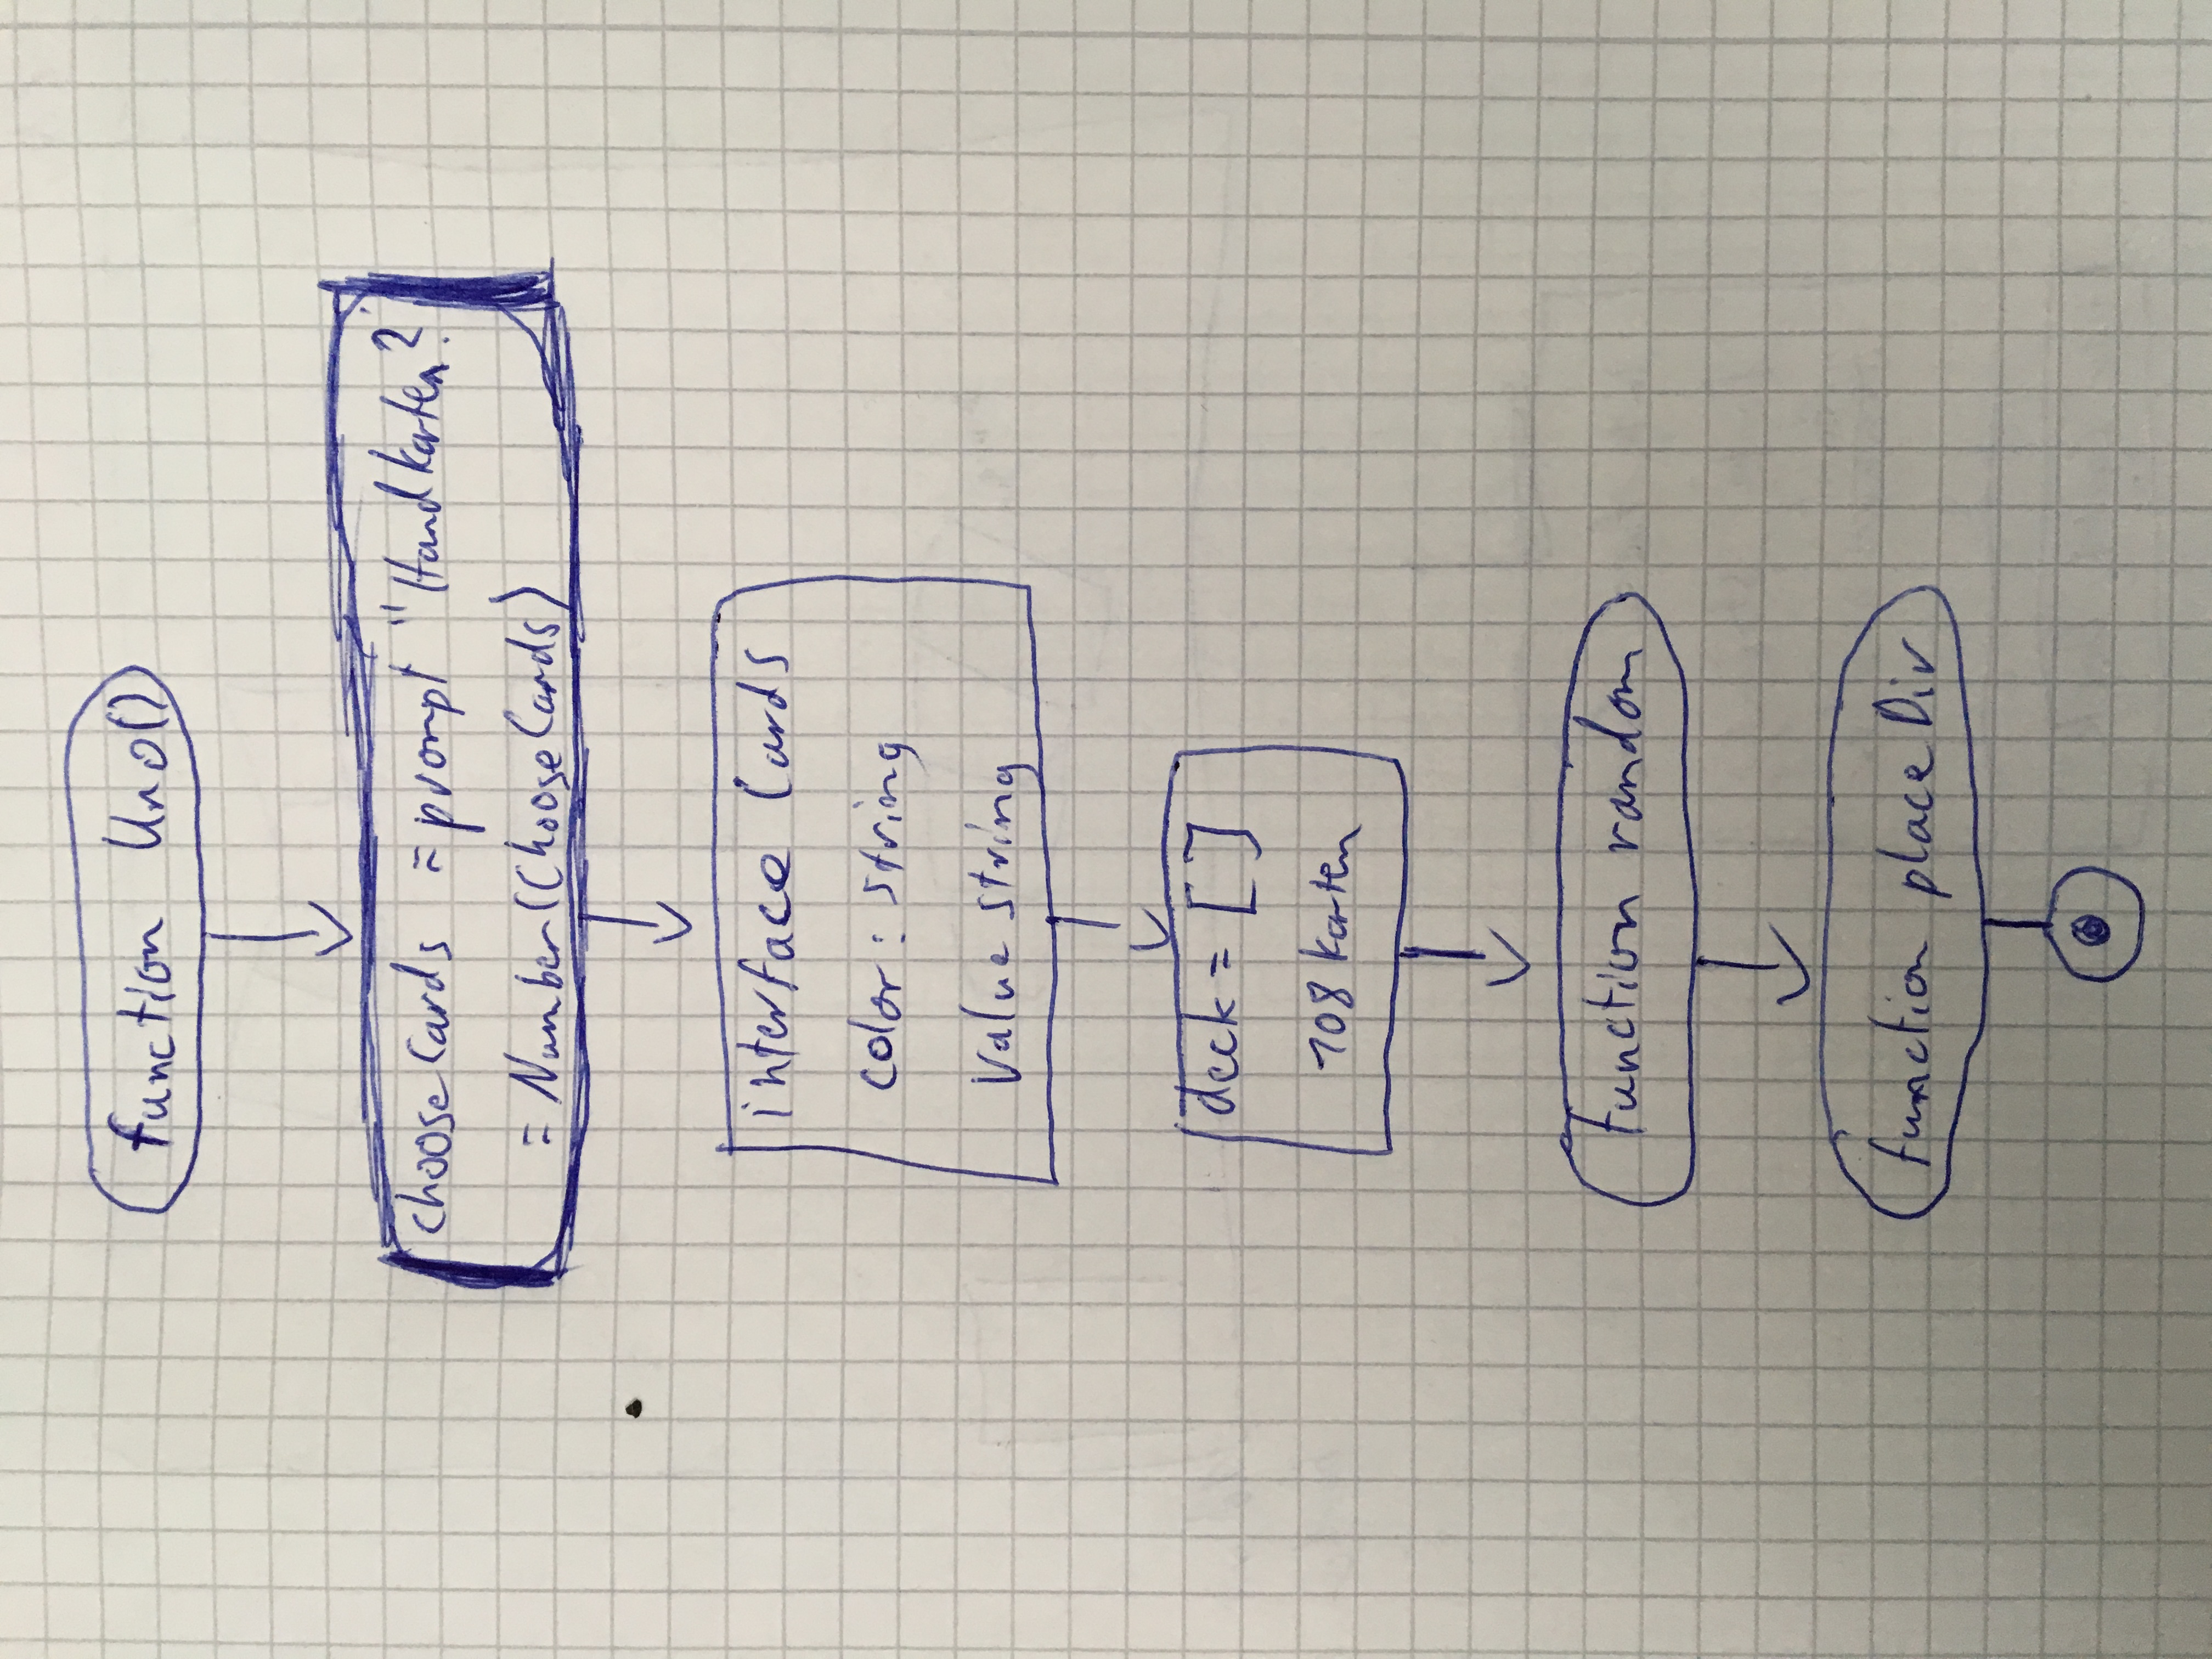 function Uno()
chooseCards = prompt "Handkarten?
= Number(ChooseCards)
interface Cards
color: string
Value string
deck = []
108 karten
function random
function placeDiv